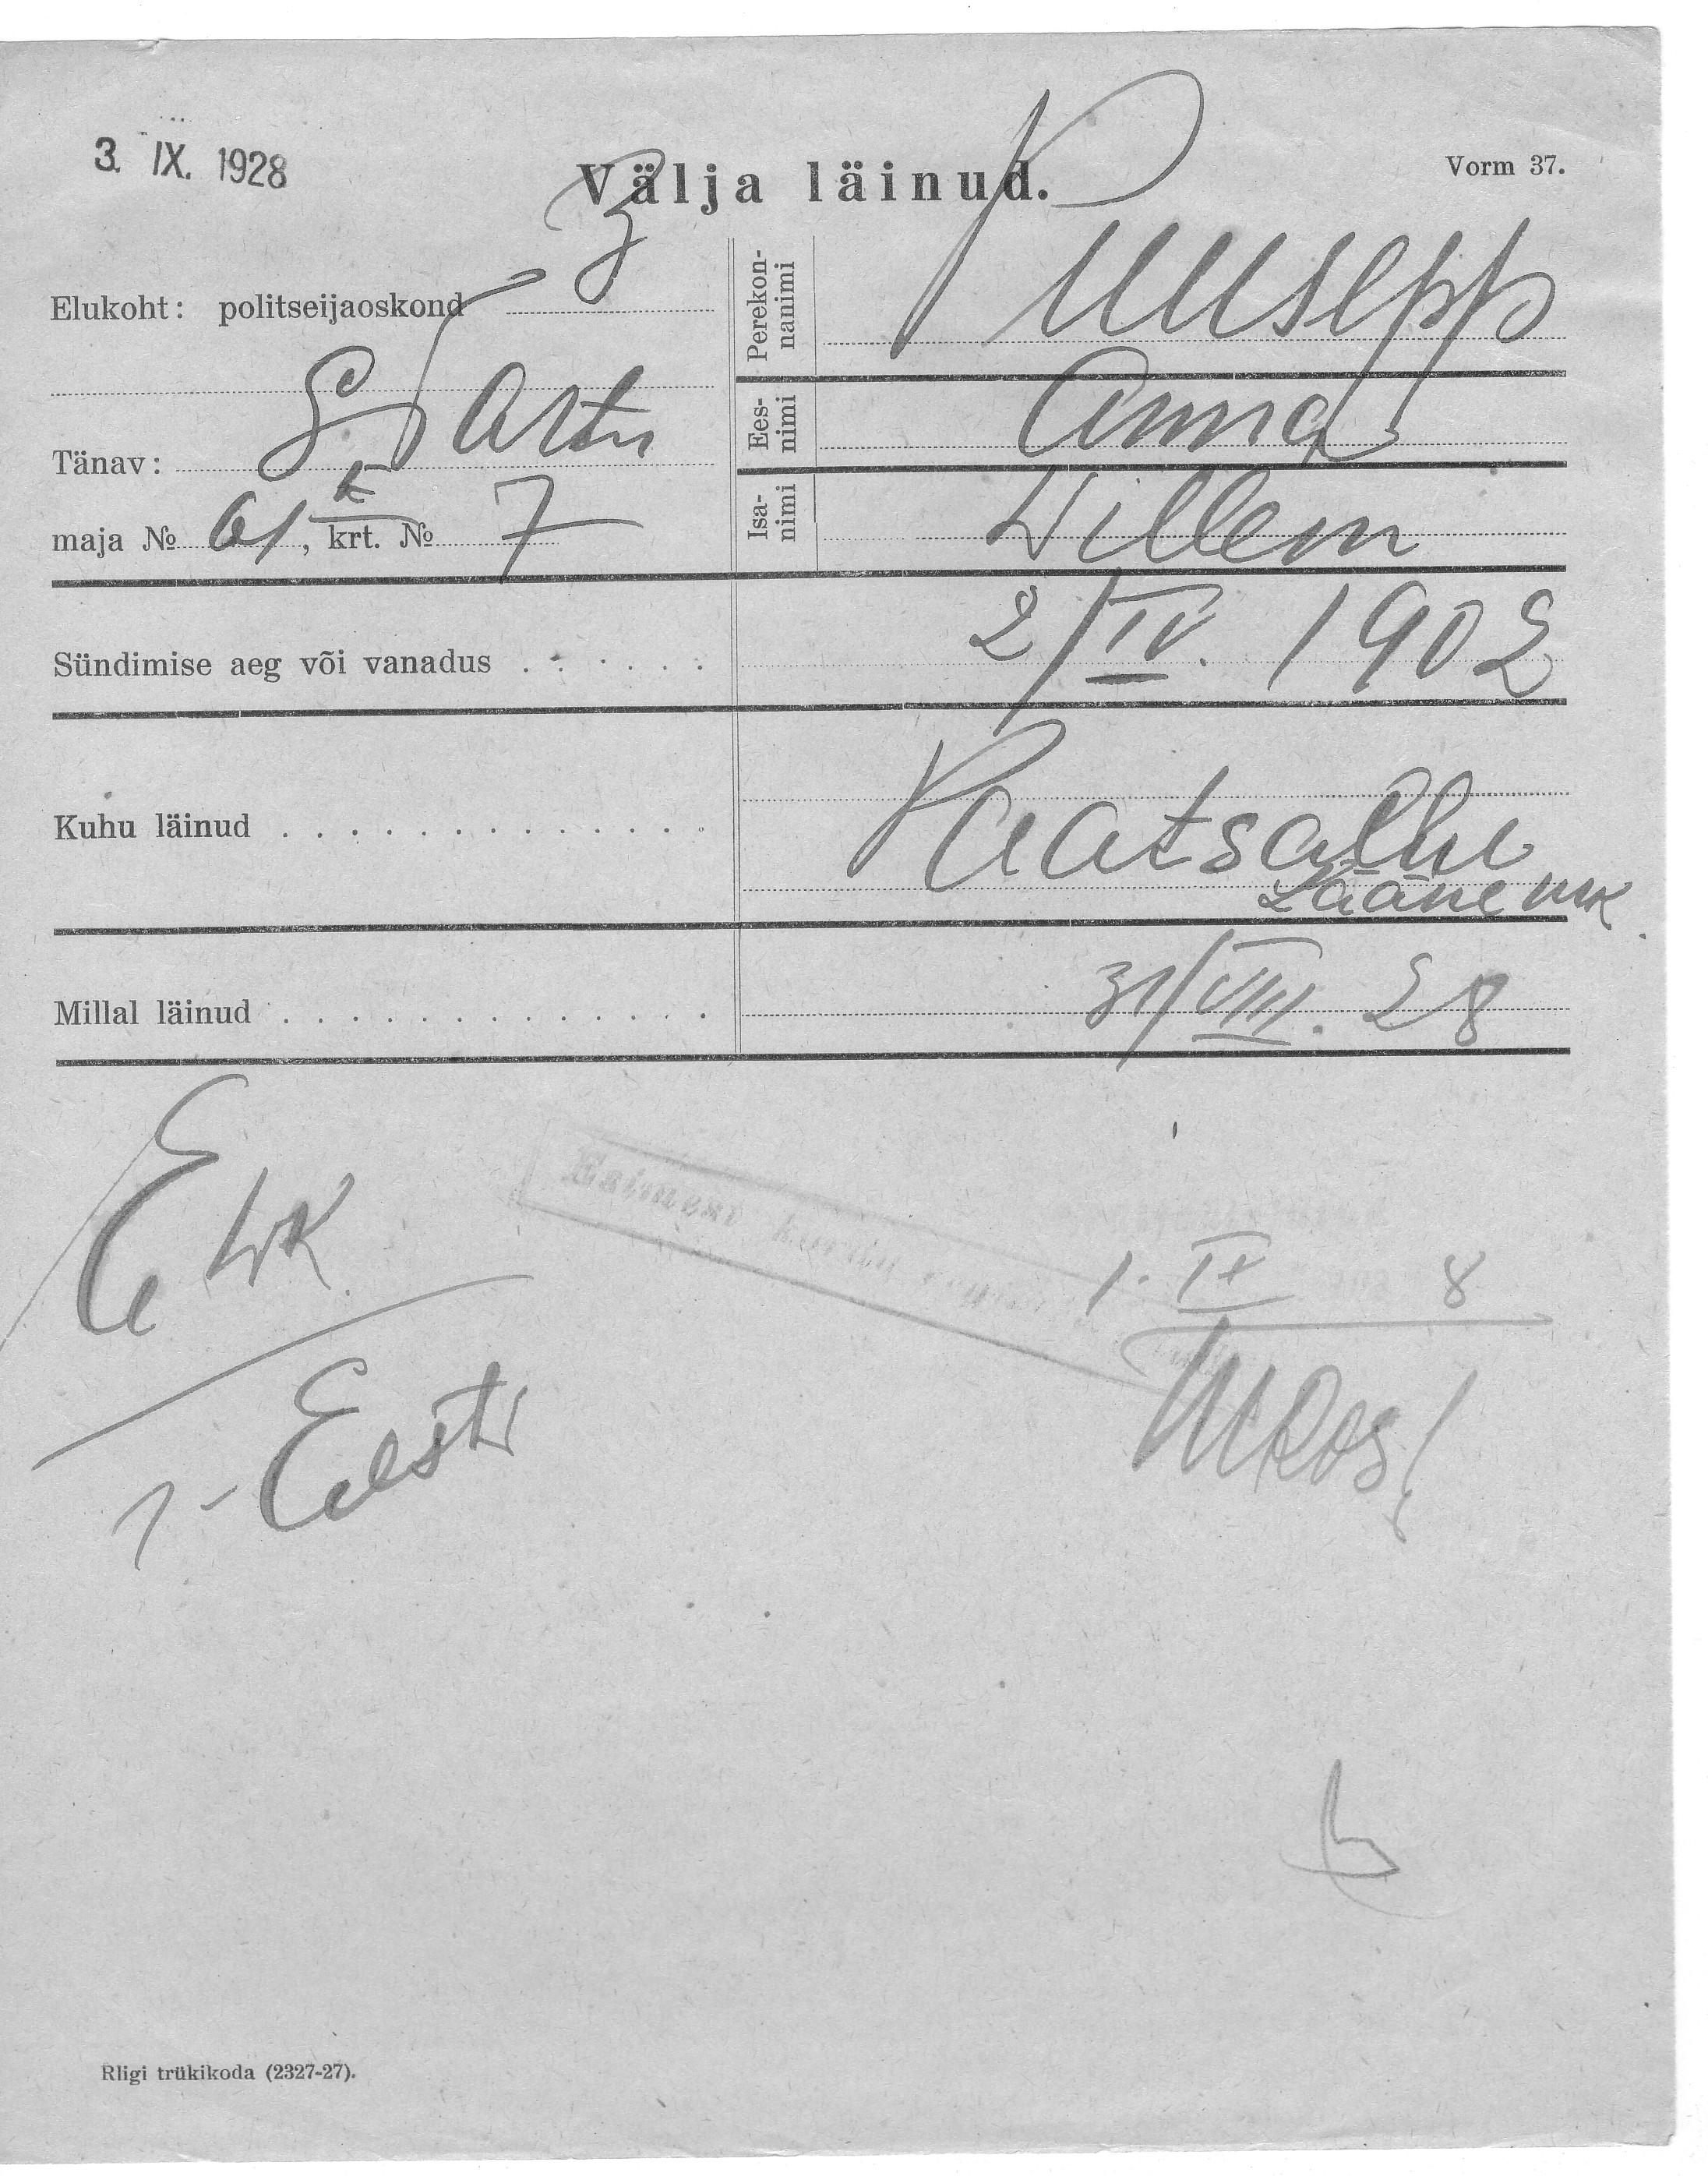 3. IX. 1928
Välja läinud.
Vorm 37.
Elukoht: politseijaoskond 3
Tänav: S. Tartu
maja № 61, krt. № 7
Perekon-
nanimi
Puusepp
Ees-
nimi
Anna
Isa-
nimi
Willem
Sündimise aeg või vanadus . . . . . .
2/IV. 1902
Kuhu läinud . . . . . . . . . . . . .
Paatsalu
Lääne mk.
Millal läinud . . . . . . . . . . . . .
31/VIII. 28
Esimest korda
1. IX 8
1- Eesti
Riigi trükikoda (2327-27).